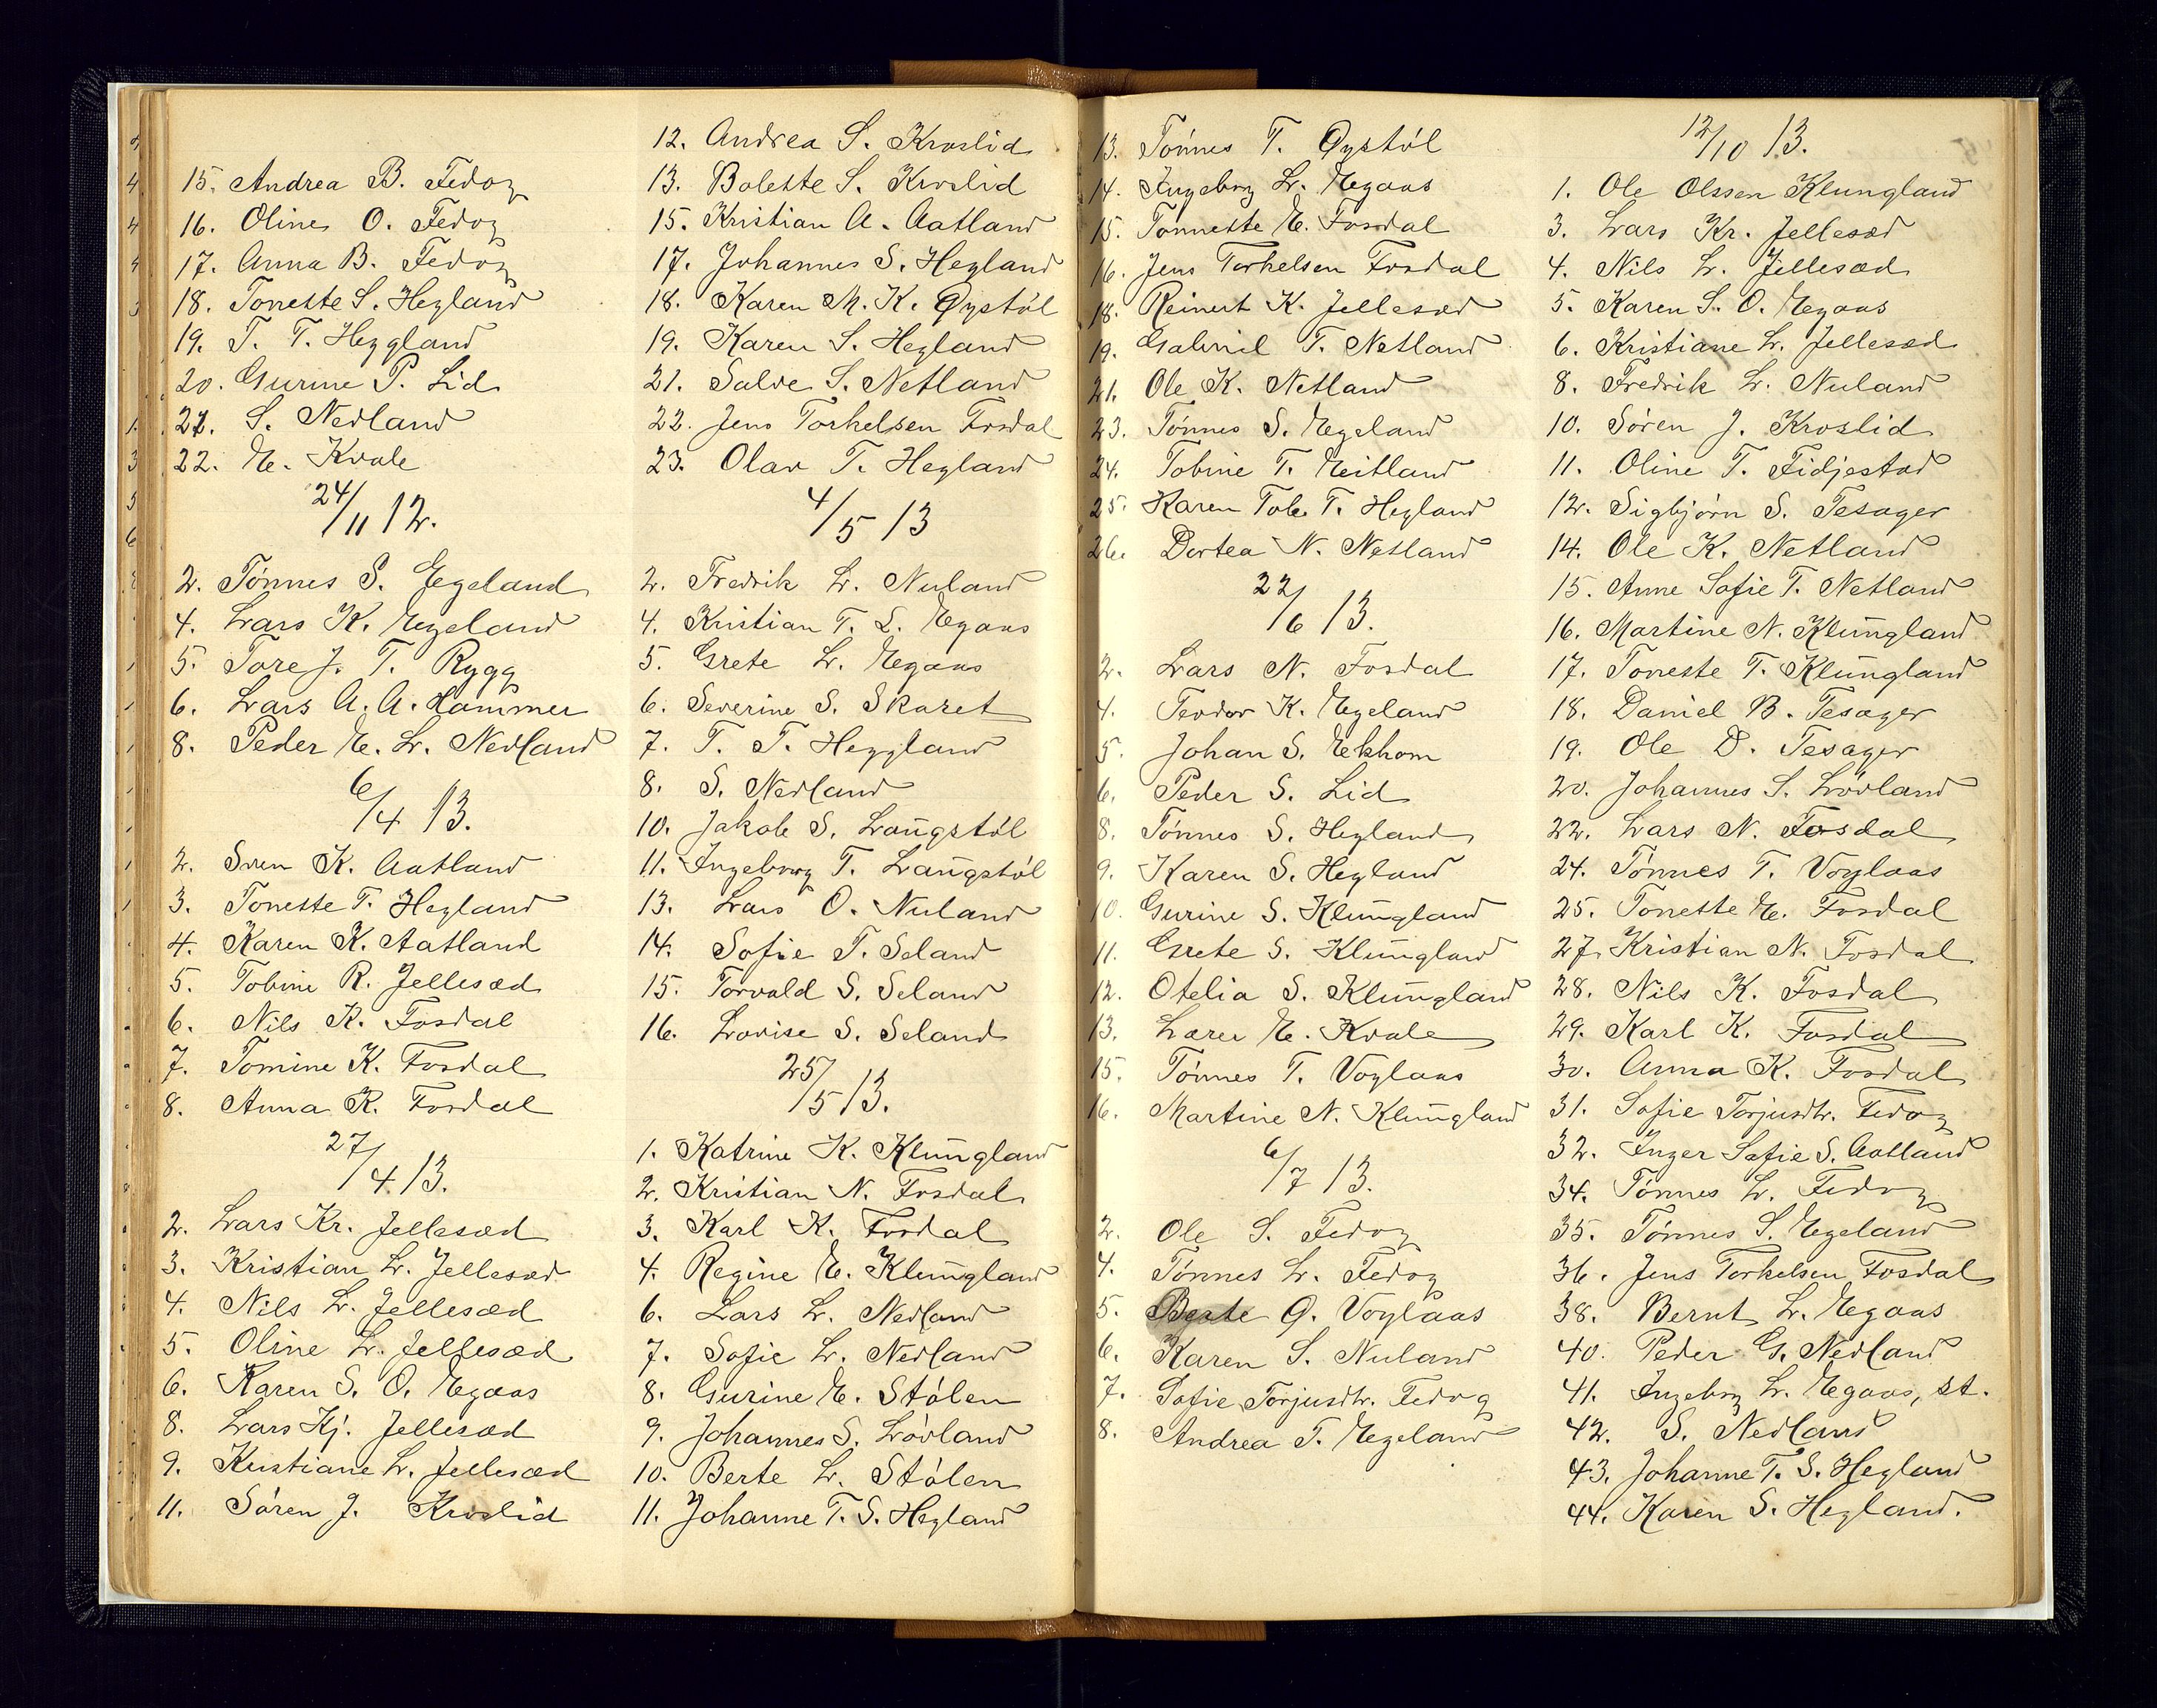 15. Andrea B. Fedog
16. Oline O. Fedog
17. Anna B. Fedog
18. Tonette S. Hegland
19. T. T. Heggland
20. Gurine P. Lid
21. S. Nedland
22. E. Kvale
24/11 12.
2. Tönnes S. Egeland
4. Lars K. Egeland
5. Tore J. T. Rygg
6. Lars A. A. Hammer
8. Peder E. L. Nedland
6/4 13.
2. Sven K. Aatland
3. Tonette T. Hegland
4. Karen K. Aatland
5. Tobine R. Jellesæd
6. Nils K. Fosdal
7. Tomine K. Fosdal
8. Anna K. Fosdal
27/4 13.
2. Lars Kr. Jellesæd
3. Kristian L. Jellesæd
4. Nils L. Jellesæd
5. Oline L. Jellesæd
6. Karen S. O. Egaas
8. Lars Kj. Jellesæd
9. Kristiane L. Jellesæd
11. Sören J. Kroslid
12. Andrea S. Kroslid
13. Bolette S. Kroslid
15. Kristian A. Aatland
17. Johannes S. Hegland
18. Karen M. K. Øystöl
19. Karen S. Hegland
21. Salve S. Netland
22. Jens Torkelsen Fosdal
23. Olav T. Hegland
4/5 13
2. Fredrik L. Nuland
4. Kristian T. L. Egaas
5. Grete L. Egaas
6. Severine S. Skaret
7. T. T. Heggland
8. S. Nedland
10. Jakob S. Langstöl
11. Ingeborg T. Langstöl
13. Lars O. Nuland
14. Sofie T. Seland
15. Torvald S. Seland
16. Lovise S. Seland
25/5 13.
1. Katrine K. Klungland
2. Kristian N. Fosdal
3. Karl K. Fosdal
4. Regine E. Klungland
6. Lars L. Nedland
7. Sofie L. Nedland
8. Gurine E. Stölen
9. Johannes S. Lövland
10. Berte L. Stölen
11. Johanne T. S. Hegland
13. Tönnes T. Øystöl
14. Ingeborg L. Egaas
15. Tonnette E. Fosdal
16. Jens Torkelsen Fosdal
18. Reinert K. Jellesæd
19. Gabriel T. Netland
21. Ole K. Netland
23. Tönnes S. Egeland
24. Tobine T. Eitland
25. Karen Tob. T. Hegland
26. Dortea N. Netland
22/6 13.
2. Lars N. Fosdal
4. Teodor K. Egeland
5. Johan S. Ekhom
6. Peder S. Lid
8. Tönnes S. Hegland
9. Karen S. Hegland
10. Gurine S. Klungland
11. Grete S. Klungland
12. Otelia S. Klungland
13. Lærer E. Kvale
15. Tönnes T. Voglaas
16. Martine N. Klungland
6/7 13.
2. Ole S. Fedog
4. Tönnes L. Fedog
5. Berte G. Voglaas
6. Karen S. Nuland
7. Sofie Torjusdtr. Fedog
8. Andrea T. Egeland
12/10 13.
1. Ole Olssen Klungland
3. Lars Kr. Jellesæd
4. Nils L. Jellesæd
5. Karen S. O. Egaas
6. Kristiane L. Jellesæd
8. Fredrik L. Nuland
10. Sören J. Kroslid
11. Oline T. Fidjestad
12. Sigbjörn S. Tesager
14. Ole K. Netland
15. Anne Sofie T. Netland
16. Martine N. Klungland
17. Tonette T. Klungland
18. Daniel B. Tesager
19. Ole D. Tesager
20. Johannes S. Lövland
22. Lars N. Fosdal
24. Tönnes T. Voglaas
25. Tonette E. Fosdal
27. Kristian N. Fosdal
28. Nils K. Fosdal
29. Karl K. Fosdal
30. Anna K. Fosdal
31. Sofie Torjusdtr. Fedog
32. Inger Sofie S. Aatland
34. Tönnes L. Fedog
35. Tönnes S. Egeland
36. Jens Torkelsen Fosdal
38. Bernt L. Egaas
40. Peder G. Nedland
41. Ingeborg L. Egaas, st.
42. S. Nedland
43. Johanne T. S. Hegland
44. Karen S. Hegland.